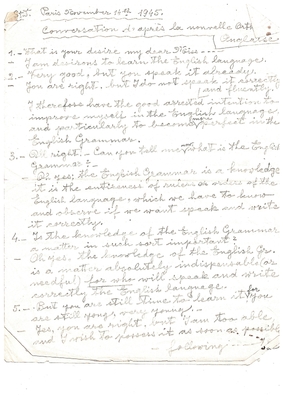 Paris November 14th 1945.
Conversation d'après la nouvelle
1. - What is your desire my dear
- I am desirous to learn the English language.
2. - Very good, but you speak it already.
- You are right, but I do not speak it correctly
(and fluently.)
I therefore have the good arrested intention to
improve myself in the English language
and particularly to become perfect in the
English Grammar.
3. - All right! - Can you tell me what is the English
Grammar? -
- Oh yes; the English Grammar is a knowledge
it is the of rules or orders of the
English language, which we have to know
and observe if we want speak and write
it correctly.
4. - Is the knowledge of the English Grammar
a matter in such sort important?
- Oh yes, the knowledge of the English Gr.
is a matter absolutely indispensable (or
needful) for who will speak and write
correctly the English language.
5. - But you are still time to learn it for you
are still young, very young. -
- Yes, you are right, but I am too able
and I wish to possess it as soon as possible
- following -